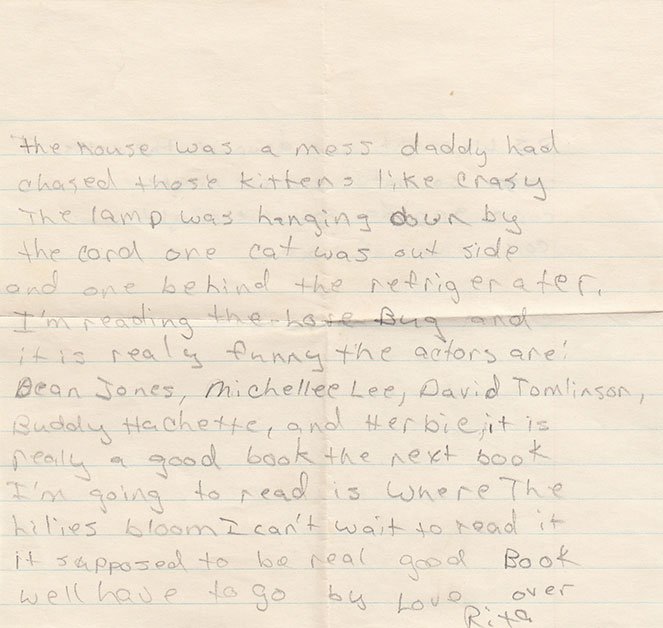 The house was a mess daddy had
chased those kittens like crasy
The lamp was hanging down by
the cord one cat was out side
and one behind the refrigerater.
I'm reading the love Bug and
it is realy funny the actors are:
Dean Jones, Michellee Lee, David Tomlinson,
Buddy Hachette, and Herbie, it is
really a good book the next book
I'm going to read is Where The
lilies bloom I can't wait to read it
it supposed to be real good Book
well have to go by Love over
Rita